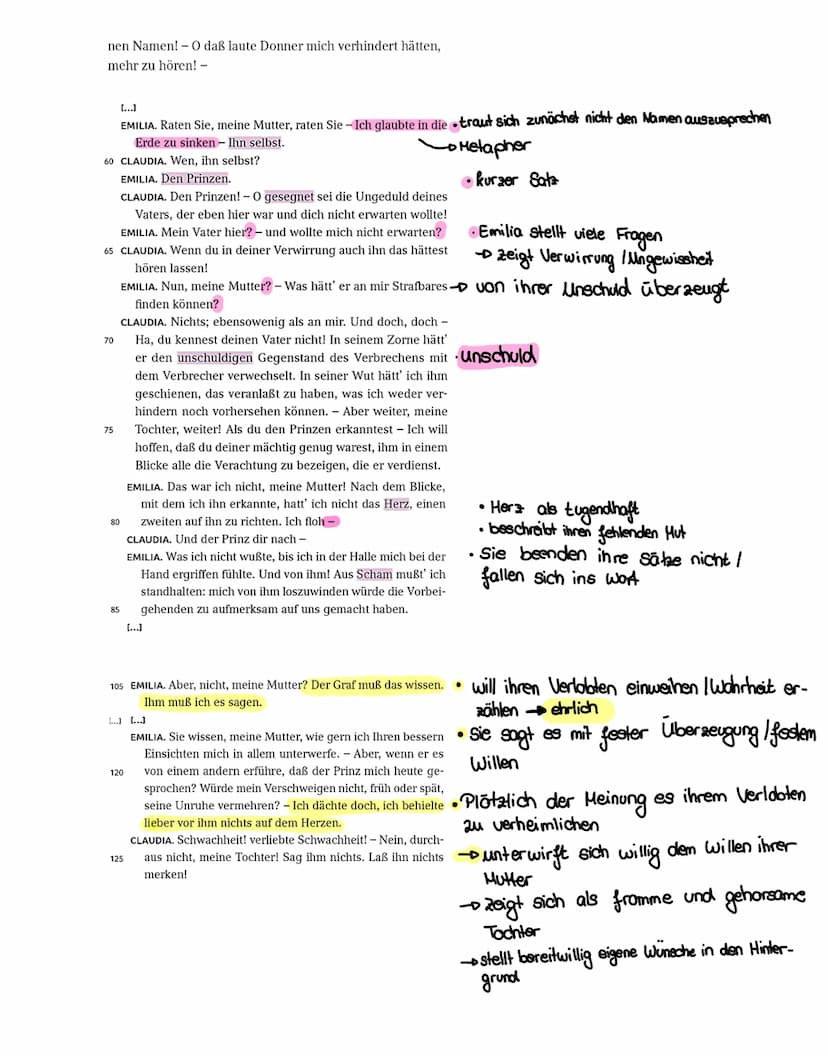 nen Namen! – O daß laute Donner mich verhindert hätten,
mehr zu hören! –
[...]
EMILIA. Raten Sie, meine Mutter, raten Sie – Ich glaubte in die
• traut sich zunächst nicht den Namen auszusprechen
Erde zu sinken – Ihn selbst.
→ Metapher
60 CLAUDIA. Wen, ihn selbst?
EMILIA. Den Prinzen.
• kurzer Satz
CLAUDIA. Den Prinzen! – O gesegnet sei die Ungeduld deines
Vaters, der eben hier war und dich nicht erwarten wollte!
EMILIA. Mein Vater hier? – und wollte mich nicht erwarten?
• Emilia stellt viele Fragen
65 CLAUDIA. Wenn du in deiner Verwirrung auch ihn das hättest
→ zeigt Verwirrung / Ungewissheit
hören lassen!
EMILIA. Nun, meine Mutter? – Was hätt' er an mir Strafbares
→ von ihrer Unschuld überzeugt
finden können?
CLAUDIA. Nichts; ebensowenig als an mir. Und doch, doch –
70 Ha, du kennest deinen Vater nicht! In seinem Zorne hätt'
er den unschuldigen Gegenstand des Verbrechens mit
• unschuld
dem Verbrecher verwechselt. In seiner Wut hätt' ich ihm
geschienen, das veranlaßt zu haben, was ich weder ver-
hindern noch vorhersehen können. – Aber weiter, meine
75 Tochter, weiter! Als du den Prinzen erkanntest – Ich will
hoffen, daß du deiner mächtig genug warest, ihm in einem
Blicke alle die Verachtung zu bezeigen, die er verdienst.
EMILIA. Das war ich nicht, meine Mutter! Nach dem Blicke,
mit dem ich ihn erkannte, hatt' ich nicht das Herz, einen
• Herz als tugendhaft
80 zweiten auf ihn zu richten. Ich floh –
• beschreibt ihren fehlenden Mut
CLAUDIA. Und der Prinz dir nach –
EMILIA. Was ich nicht wußte, bis ich in der Halle mich bei der
• Sie beenden ihre Sätze nicht /
Hand ergriffen fühlte. Und von ihm! Aus Scham mußt' ich
fallen sich ins Wort
standhalten: mich von ihm loszuwinden würde die Vorbei-
85 gehenden zu aufmerksam auf uns gemacht haben.
[...]
105 EMILIA. Aber, nicht, meine Mutter? Der Graf muß das wissen.
• will ihren Verlobten einweihen / Wahrheit er-
Ihm muß ich es sagen.
zählen → ehrlich
[...] [...]
EMILIA. Sie wissen, meine Mutter, wie gern ich Ihren bessern
• Sie sagt es mit fester Überzeugung / festem
Einsichten mich in allem unterwerfe. – Aber, wenn er es
Willen
120 von einem andern erführe, daß der Prinz mich heute ge-
sprochen? Würde mein Verschweigen nicht, früh oder spät,
seine Unruhe vermehren? – Ich dächte doch, ich behielte
• Plötzlich der Meinung es ihrem Verlobten
lieber vor ihm nichts auf dem Herzen.
zu verheimlichen
CLAUDIA. Schwachheit! verliebte Schwachheit! – Nein, durch-
125 aus nicht, meine Tochter! Sag ihm nichts. Laß ihn nichts
→ unterwirft sich willig dem Willen ihrer
merken!
Mutter
→ zeigt sich als fromme und gehorsame
Tochter
→ stellt bereitwillig eigene Wünsche in den Hinter-
grund